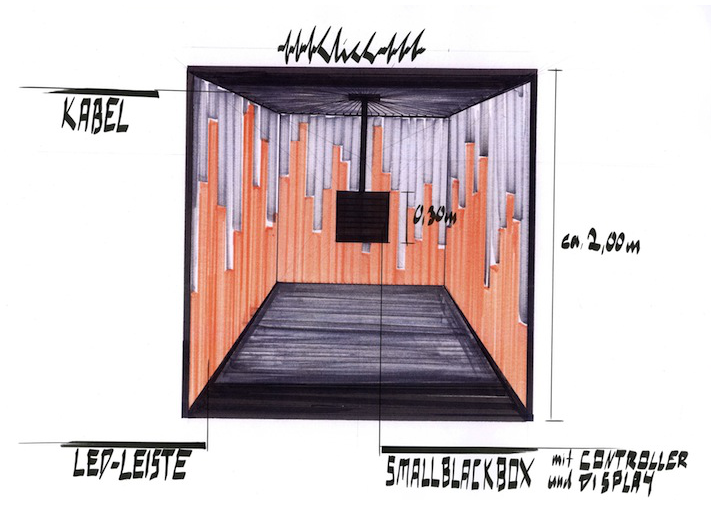 KABEL
0,30m
ca. 2,00m
LED-LEISTE
SMALLBLACKBOX mit CONTROLLER
und DISPLAY